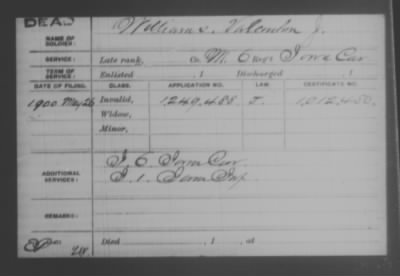 DEAD
NAME OF SOLDIER: Williams, Valentin J.
SERVICE: Late rank, Co. M. 6 Reg't Iowa Cav
TERM OF SERVICE: Enlisted , 1 Discharged , 1
DATE OF FILING. CLASS. APPLICATION NO. LAW. CERTIFICATE NO.
1900 May 26 Invalid, 1249,488 J. 1,012,450.
Widow,
Minor,
ADDITIONAL SERVICES: I. 6. Iowa Cav.
I. 1. Iowa Inf.
REMARKS:
Died , 1 , at